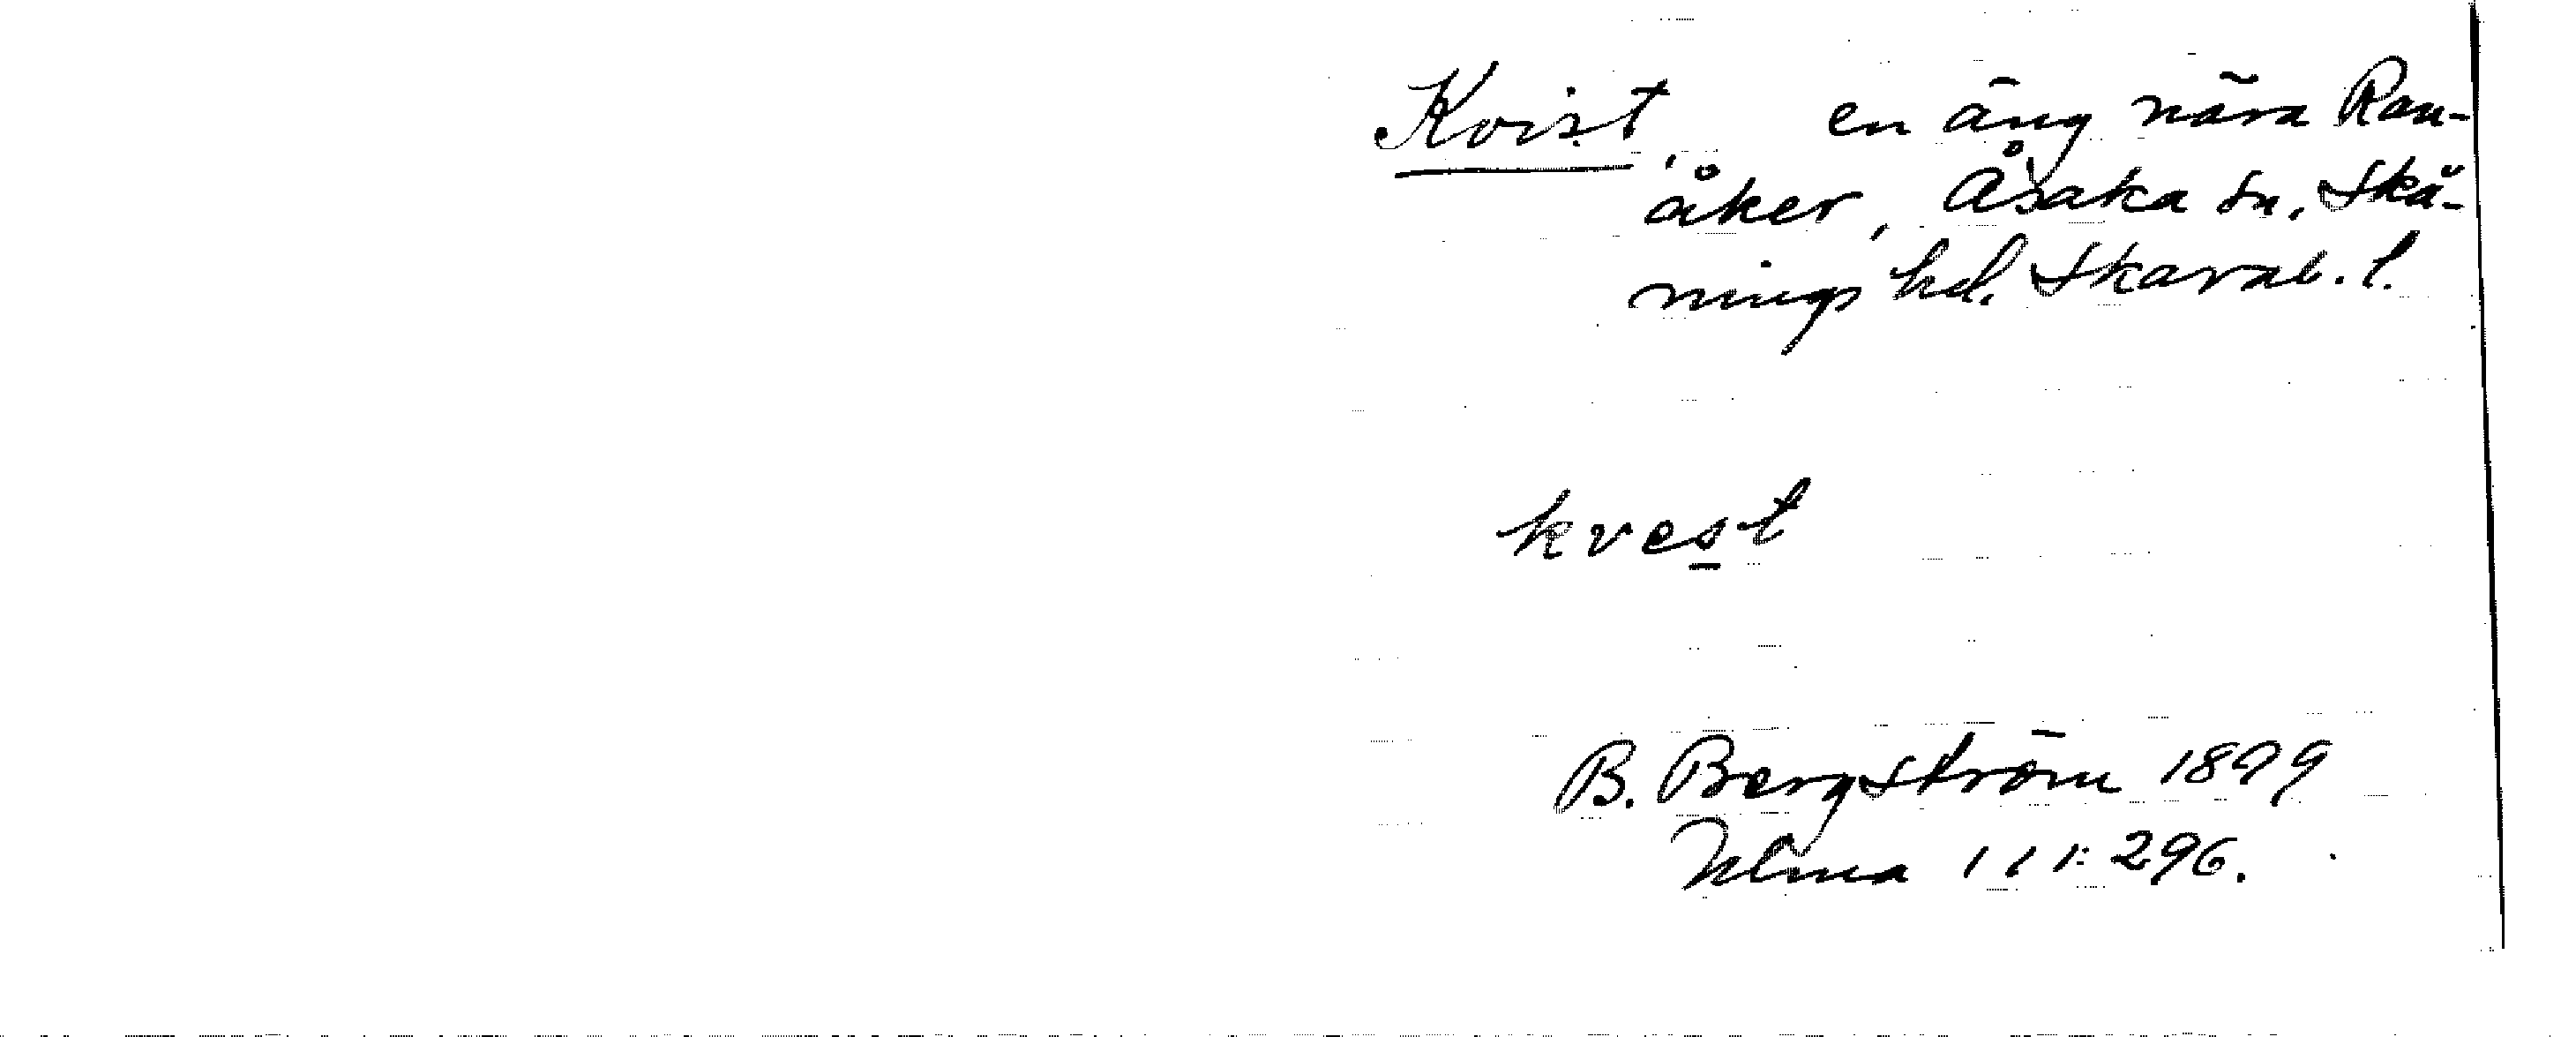 Kvist, en äng nära Ran-
åker, Åsaka sn. Skå-
nings hd. Skarab. l.
kvest
B. Bergström 1899
Ulma 111:296.